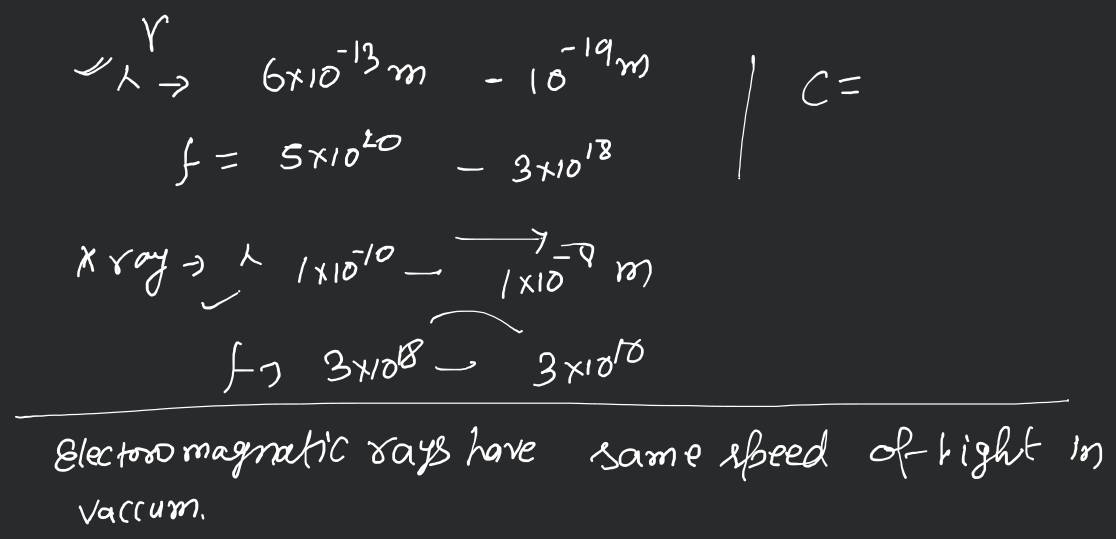 γ
λ → 6×10⁻¹³ m - 10⁻¹⁹ m | C =
f = 5×10²⁰ - 3×10¹⁸
x ray → λ 1×10⁻¹⁰ - 1×10⁻⁹ m
f → 3×10¹⁸ - 3×10¹⁰
Electoromagnatic rays have same speed of light in
vaccum.